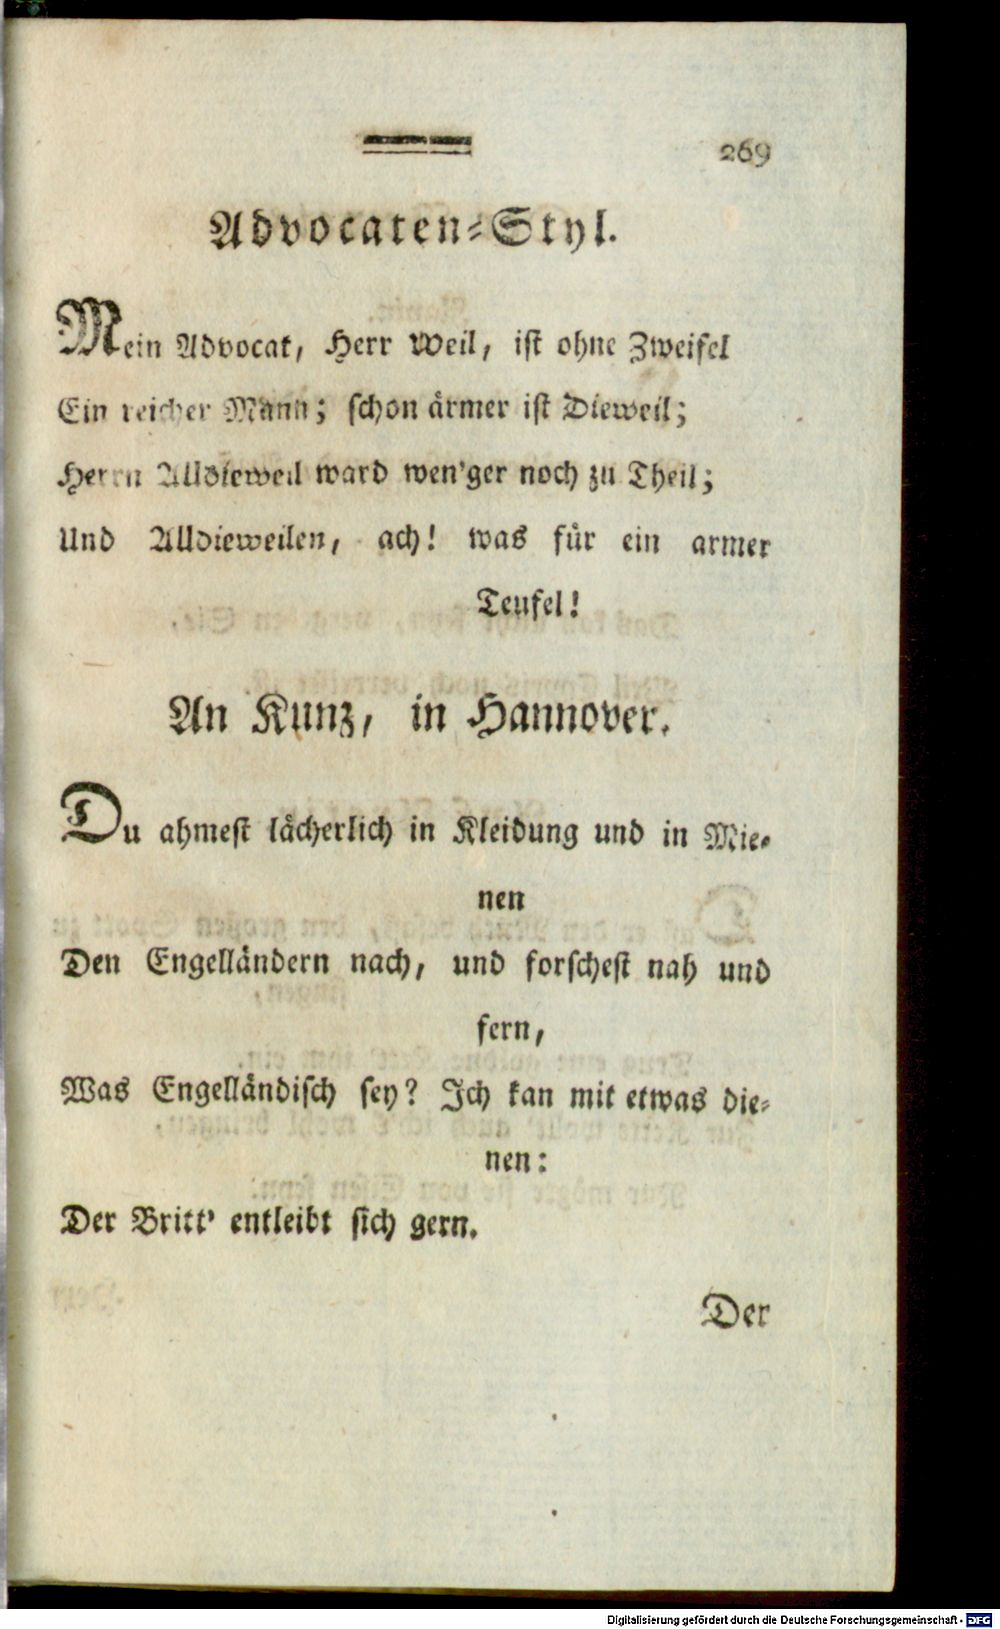 269
Advocaten-Styl.
Mein Advocat, Herr Weil, ist ohne Zweifel
Ein reicher Mann; schon ärmer ist Dieweil;
Herrn Alldieweil ward wen'ger noch zu Theil;
Und Alldieweilen, ach! was für ein armer
Teufel!
An Kunz, in Hannover.
Du ahmest lächerlich in Kleidung und in Mie-
nen
Den Engelländern nach, und forschest nah und
fern,
Was Engelländisch sey? Ich kan mit etwas die-
nen:
Der Britt' entleibt sich gern.
Der
Digitalisierung gefördert durch die Deutsche Forschungsgemeinschaft - DFG